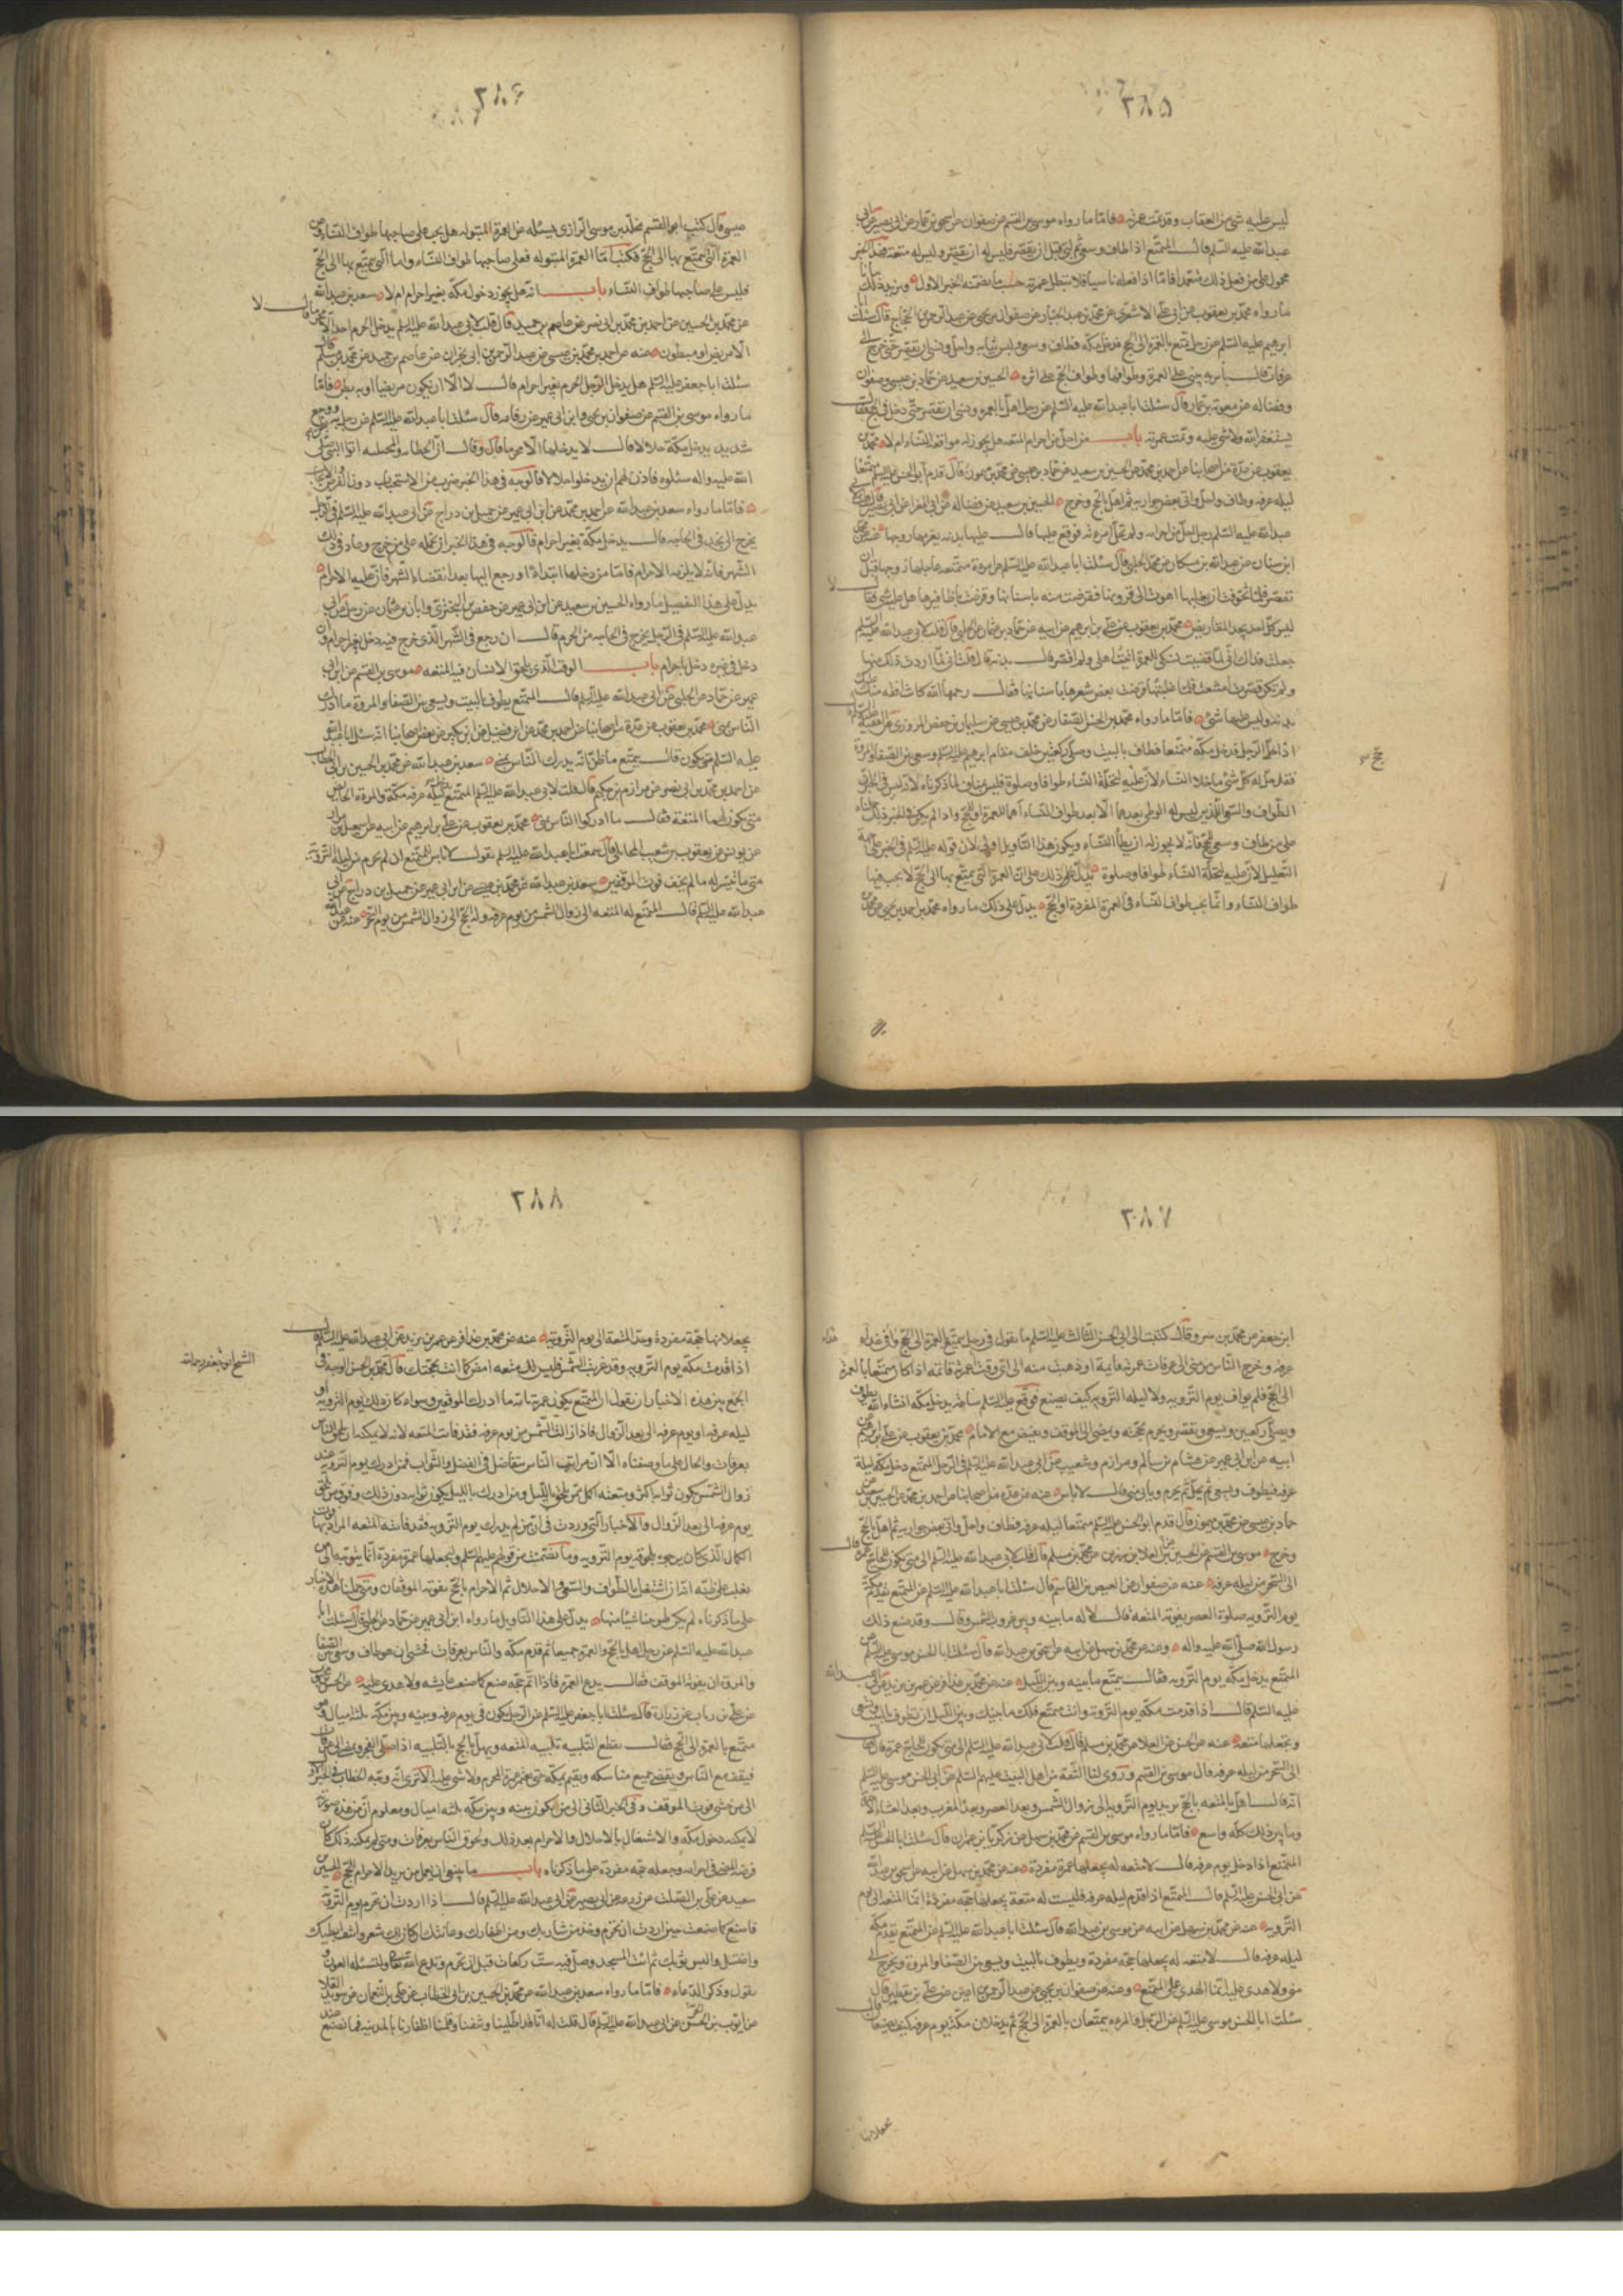 ٢٨٥
ليس عليه شئ من العقاب وقد تمت عمرته فامّا ما رواه موسى بن القسم عن صفوان عن اسحق بن عمار عن ابى بصير عن ابى
عبد الله عليه السلم قال المتمتع اذا طاف وسعى ثم لبى قبل ان يقصر فليس له ان يقصر وليس له متعة فهذا الخبر
محمول على من فعل ذلك متعمدا فامّا اذا فعله ناسيا فلا تبطل عمرته حسب ما تضمنه الخبر الاول ويزيد ذلك بيانا
ما رواه محمد بن يعقوب عن ابى على الاشعرى عن محمد بن عبد الجبار عن صفوان بن يحيى عن عبد الرحمن بن الحجاج قال سئلت ابا
ابرهيم عليه السلم عن رجل تمتع بالعمرة الى الحج فدخل مكة فطاف وسعى ولبس ثيابه واحل ونسى ان يقصر حتى خرج الى
عرفات قال لا باس به يبنى على العمرة وطوافها وطواف الحج على اثره الحسين بن سعيد عن حماد بن عيسى وصفوان
وفضاله عن معوية بن عمار قال سئلت ابا عبد الله عليه السلم عن رجل اهل بالعمرة ونسى ان يقصر حتى دخل فى الحج قال
يستغفر الله ولا شئ عليه وتمت عمرته باب من احل من احرام المتعه هل يجوز له مواقعة النساء ام لا محمد بن
يعقوب عن عدة من اصحابنا عن احمد بن محمد عن الحسين بن سعيد عن حماد بن عيسى عن محمد بن ميمون قال قدم ابو الحسن عليه السلم متمتعا
ليله عرفه وطاف واحل واتى بعض جواريه ثم اهل بالحج وخرج الحسين بن سعيد عن فضاله عن ابى المغرا عن ابى بصير قال قلت لابى
عبد الله عليه السلم رجل احل من احرامه ولم تحل امرءته فوقع عليها قال عليها بدنه يغرمها زوجها عنه عن محمد
ابن سنان عن عبد الله بن مسكان عن محمد الحلبى قال سئلت ابا عبد الله عليه السلم عن امرءة متمتعه عاجلها زوجها قبل ان
تقصر فلما تخوفت ان يغلبها اهوت الى قرونها فقرضت منها باسنانها وقرضت باظافيرها هل عليها شئ فقال لا
ليس كل احد يجد المقاريض محمد بن يعقوب عن على بن ابرهيم عن ابيه عن حماد بن عثمان عن الحلبى قال قلت لابى عبد الله عليه السلم
جعلت فداك انى لما قضيت نسكى للعمرة اتيت اهلى ولم اقصر قال عليك بدنه قال قلت انى لما اردت ذلك منها
ولم تكن قصرت امتنعت فلما غلبتها قرضت بعض شعرها باسنانها فقال رحمها الله كانت افقه منك عليك
بدنه وليس عليها شئ فامّا ما رواه محمد بن الحسن الصفار عن محمد بن عيسى عن سليمان بن حفص المروزى عن الفقيه عليه السلم
اذا حج الرجل فدخل مكة متمتعا فطاف بالبيت وصلى ركعتين خلف مقام ابرهيم عليه السلم وسعى بين الصفا والمروة
فقد حل له كل شئ ما خلا النساء لان عليه لتحلة النساء طوافا وصلوة فليس بمناف لما ذكرناه لانه ليس فى الخبر ان
الطواف والسعى اللذين ليس له الوطى بعدهما الا بعد طواف النساء اهما للعمرة او للحج واذا لم يكن فى الخبر ذلك حملناه
على من طاف وسعى للحج فانه لا يجوز له ان يطأ النساء ويكون هذا التاويل اولى لان قوله عليه السلم فى الخبر على جهة
التعليل لان عليه لتحلة النساء طوافا وصلوة يدل على ذلك على ان العمرة التى يتمتع بها الى الحج لا يجب فيها
طواف النساء وانما يجب طواف النساء فى العمرة المفردة او الحج يدل على ذلك ما رواه محمد بن احمد بن يحيى عن محمد بن
٢٨۶
عيسى قال كتب ابو القسم مخلد بن موسى الرازى يسئله عن العمرة المبتوله هل يجب على صاحبها طواف النساء وعن
العمرة التى يتمتع بها الى الحج فكتب امّا العمرة المبتوله فعلى صاحبها طواف النساء واما التى يتمتع بها الى الحج
فليس على صاحبها طواف النساء باب انه هل يجوز دخول مكه بغير احرام ام لا سعد بن عبد الله
عن محمد بن الحسين عن احمد بن محمد بن ابى نصر عن عاصم بن حميد قال قلت لابى عبد الله عليه السلم يدخل الحرم احد الا محرما قال لا
الا مريض او مبطون عنه عن احمد بن محمد بن عيسى عن عبد الرحمن بن ابى نجران عن عاصم بن حميد عن محمد بن مسلم قال
سئلت ابا جعفر عليه السلم هل يدخل الرجل الحرم بغير احرام قال لا الا ان يكون مريضا او به بطن فامّا
ما رواه موسى بن القسم عن صفوان بن يحيى وابن ابى عمير عن رفاعه قال سئلت ابا عبد الله عليه السلم عن رجل به بطن ووجع
شديد يدخل مكة حلالا قال لا يدخلها الا محرما قال وقال ان الحطابه والمجتلبه اتوا النبى صلى
الله عليه واله سئلوه فاذن لهم ان يدخلوا حلالا فالوجه فى هذا الخبر ضرب من الاستحباب دون الفرض والايجاب
فامّا ما رواه سعد بن عبد الله عن احمد بن محمد عن ابن ابى عمير عن جميل بن دراج عن ابى عبد الله عليه السلم فى الرجل
يخرج الى نجد فى الحاجه قال يدخل مكة بغير احرام فالوجه فى هذا الخبر ان نحمله على من خرج وعاد فى ذلك
الشهر فانه لا يلزمه الاحرام فامّا من دخلها ابتداءا او رجع اليها بعد انقضاء الشهر فان عليه الاحرام
يدل على هذا التفصيل ما رواه الحسين بن سعيد عن ابن ابى عمير عن حفص بن البخترى وابان بن عثمان عن رجل عن ابى
عبد الله عليه السلم فى الرجل يخرج فى الحاجه من الحرم قال ان رجع فى الشهر الذى خرج فيه دخل بغير احرام وان
دخل فى غيره دخل باحرام باب الوقت الذى يلحق الانسان فيه المتعه موسى بن القسم عن ابن ابى
عمير عن حماد عن الحلبى عن ابى عبد الله عليه السلم قال المتمتع يطوف بالبيت ويسعى بين الصفا والمروة ما ادرك
الناس بمنى محمد بن يعقوب عن عدة من اصحابنا عن احمد بن محمد عن ابن فضال عن ابن بكير عن بعض اصحابنا انه سئل ابا عبد الله
عليه السلم متى يكون قال يتمتع ما ظن انه يدرك الناس بمنى سعد بن عبد الله عن محمد بن الحسين بن ابى الخطاب
عن احمد بن محمد بن ابى نصر عن مرازم بن حكيم قال قلت لابى عبد الله عليه السلم المتمتع يدخل ليلة عرفه مكة والمرءة الحائض
متى يكون لهما المتعة فقال ما ادركوا الناس بمنى محمد بن يعقوب عن على بن ابرهيم عن ابيه عن اسمعيل بن مرار
عن يونس عن يعقوب بن شعيب المحاملى قال سمعت ابا عبد الله عليه السلم يقول لا باس للمتمتع ان لم يحرم من ليلة التروية
متى ما تيسر له ما لم يخف فوت الموقفين سعد بن عبد الله عن محمد بن عيسى عن ابن ابى عمير عن جميل بن دراج عن ابى
عبد الله عليه السلم قال المتمتع له المتعه الى زوال الشمس من يوم عرفه وله الحج الى زوال الشمس من يوم النحر عنه عن عبد الله
٢٨٧
ابن جعفر عن محمد بن سرو قال كتبت الى ابى الحسن الثالث عليه السلم ما تقول فى رجل يتمتع بالعمرة الى الحج وافى غداة
عرفه وخرج الناس من منى الى عرفات عمرته قايمة او ذهبت منه الى اى وقت عمرته قائمه اذا كان متمتعا بالعمرة
الى الحج فلم يواف يوم الترويه ولا ليله الترويه كيف يصنع فوقع عليه السلم ساعة يدخل مكه انشاء الله يطوف
ويصلى ركعتين ويسعى ويقصر ويحرم بحجته ويمضى الى الموقف ويفيض مع الامام محمد بن يعقوب عن على بن ابرهيم عن
ابيه عن ابن ابى عمير عن هشام بن سالم ومرازم وشعيب عن ابى عبد الله عليه السلم فى الرجل المتمتع دخل مكة ليلة
عرفه فيطوف ويسعى ثم يحل ثم يحرم وياتى منى قال لا باس عنه عن عدة من اصحابنا عن احمد بن محمد عن الحسين بن سعيد عن
حماد بن عيسى عن محمد بن ميمون قال قدم ابو الحسن عليه السلم متمتعا ليله عرفه فطاف واحل واتى بعض جواريه ثم اهل بالحج
وخرج موسى بن القسم عن الحسن عن العلا بن رزين عن محمد بن مسلم قال قلت لابى عبد الله عليه السلم الى متى يكون للحاج عمرة قال
الى السحر من ليله عرفه عنه عن صفوان عن العيص بن القاسم قال سئلت ابا عبد الله عليه السلم عن المتمتع يقدم مكة
يوم الترويه صلوة العصر تفوته المتعة فقال لا له ما بينه وبين غروب الشمس وقال وقد صنع ذلك
رسول الله صلى الله عليه واله وعنه عن محمد بن سهل عن ابيه عن اسحق بن عبد الله قال سئلت ابا الحسن موسى عليه السلم عن
المتمتع يدخل مكة يوم الترويه فقال يتمتع ما بينه وبين الليل عنه عن محمد بن عذافر عن عمر بن يزيد عن ابى عبد الله
عليه السلم قال اذا قدمت مكة يوم التروية وانت متمتع فلك ما بينك وبين الليل ان تطوف بالبيت وتسعى
وتجعلها متعه عنه عن الحسن عن العلا عن محمد بن مسلم قال قلت لابى عبد الله عليه السلم الى متى يكون للحاج عمرة قال
الى السحر من ليله عرفه قال موسى بن القسم وروى لنا الثقة من اهل البيت عليهم السلم عن ابى الحسن موسى عليه السلم
انه قال اهل بالمتعه بالحج يريد يوم الترويه الى زوال الشمس وبعد العصر وبعد المغرب وبعد العشاء الاخرة
وما بين ذلك كله واسع فامّا ما رواه موسى بن القسم عن محمد بن سهل عن زكريا بن عمران قال سئلت ابا الحسن عليه السلم
المتمتع اذا دخل يوم عرفه قال لا متعه له يجعلها عمرة مفردة عنه عن محمد بن سهل عن ابيه عن اسحق بن عبد الله
عن ابى الحسن عليه السلم قال المتمتع اذا قدم ليله عرفه فليست له متعة يجعلها حجه مفردة انما المتعه الى يوم
الترويه عنه عن محمد بن سهل عن ابيه عن موسى بن عبد الله قال سئلت ابا عبد الله عليه السلم عن المتمتع يقدم مكة
ليله عرفه قال لا متعه له يجعلها حجه مفردة ويطوف بالبيت ويسعى بين الصفا والمروة ويخرج الى
منى ولا هدى عليه انما الهدى على المتمتع وعنه عن صفوان بن يحيى عن عبد الرحمن بن اعين عن على بن يقطين قال
سئلت ابا الحسن موسى عليه السلم عن الرجل والمرءه يتمتعان بالعمرة الى الحج ثم يدخلان مكة يوم عرفه كيف يصنعان قال
يجعلانها
٢٨٨
يجعلانها حجة مفردة وحد المتعة الى يوم التروية عنه عن محمد بن عذافر عن عمر بن يزيد عن ابى عبد الله عليه السلم قال
اذا قدمت مكة يوم الترويه وقد غربت الشمس فليس لك متعه امض كما انت بحجتك قال محمد بن الحسن الوجه فى
الشيخ ابو جعفر رحمه الله
الجمع بين هذه الاخبار ان نقول ان المتمتع يكون عمرته تامه ما ادرك الموقفين وسواء كان ذلك يوم الترويه او
ليله عرفه او يوم عرفه الى بعد الزوال فاذا زالت الشمس من يوم عرفه فقد فاتت المتعه لانه لا يمكنه ان يلحق الناس
بعرفات والحال على ما وصفناه الا ان مراتب الناس تتفاضل فى الفضل والثواب فمن ادرك يوم الترويه عند
زوال الشمس يكون ثوابه اكثر ومتعته اكمل ممن يلحق بالليل ومن ادرك بالليل يكون ثوابه دون ذلك وفوق من يلحق
يوم عرفه الى بعد الزوال والاخبار التى وردت فى ان من لم يدرك يوم الترويه فقد فاتته المتعه المراد بها فوت
الكمال الذى كان يرجوه بلحوقه يوم الترويه وما تضمنت من قولهم عليهم السلم وليجعلها عمرة مفردة انما يتوجه الى من
يغلب على ظنه انه ان اشتغل بالطواف والسعى والاحلال ثم الاحرام بالحج يفوته الموقفان ومتى حملنا هذه الاخبار
على ما ذكرناه لم يكن طرحنا شيئا منها يدل على هذا التاويل ما رواه ابن ابى عمير عن حماد عن الحلبى قال سئلت ابا
عبد الله عليه السلم عن رجل اهل بالحج والعمرة جميعا ثم قدم مكه والناس بعرفات فخشى ان هو طاف وسعى بين الصفا
والمروة ان يفوته الموقف فقال يدع العمرة فاذا اتم حجه صنع كما صنعت عايشه ولا هدى عليه عن الحسن بن محبوب
عن على بن رئاب عن زرارة قال سئلت ابا جعفر عليه السلم عن الرجل يكون فى يوم عرفه وبينه وبين مكة ثلثة اميال وهو
متمتع بالعمرة الى الحج فقال يقطع التلبيه تلبيه المتعه ويهل بالحج بالتلبيه اذا صلى الفجر ويمضى الى عرفات
فيقف مع الناس ويقضى جميع مناسكه ويقيم بمكة حتى يعتمر عمرة المحرم ولا شئ عليه الا ترى انه وجه الخطاب فى الخبر الاول
الى من خشى فوت الموقف وفى الخبر الثانى الى من يكون بينه وبين مكة ثلثه اميال ومعلوم ان من هذه صورته
لا يمكنه دخول مكه والاشتغال بالاحلال والاحرام بعد ذلك ولحوق الناس بعرفات ومتى لم يمكنه ذلك كان
فرضه المضى فى احرامه ويجعله حجه مفردة على ما ذكرناه باب ما ينبغى ان يعمل من يريد الاحرام للحج الحسين بن
سعيد عن على بن الصلت عن زرعه عن ابى بصير عن ابى عبد الله عليه السلم قال اذا اردت ان تحرم يوم التروية
فاصنع كما صنعت حين اردت ان تحرم وخذ من شاربك ومن اظفارك وعانتك ان كان لك شعر وانتف ابطيك
واغتسل والبس ثوبيك ثم ائت المسجد وصل فيه ست ركعات قبل ان تحرم وتدعو الله تعالى وتسئله العون و
تقول وذكر الدعاء فامّا ما رواه سعد بن عبد الله عن محمد بن الحسين بن ابى الخطاب عن على بن النعمان عن سويد القلا
عن ايوب بن الحر عن ابى عبد الله عليه السلم قال قلت له انا قد اطلينا ونتفنا وقلمنا اظفارنا بالمدينه فما نصنع عند